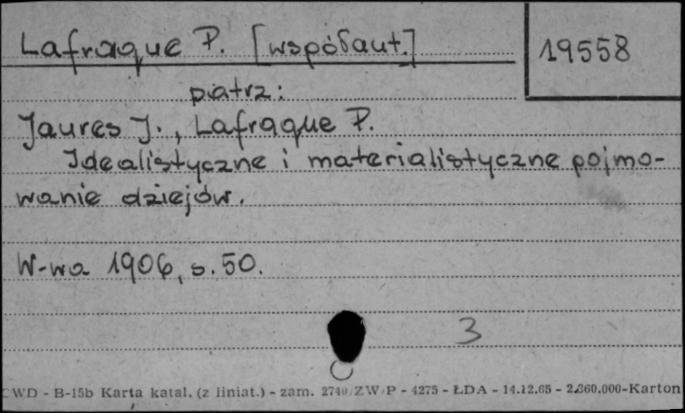 Lafraque P. [współaut.]
19558
patrz:
Jaures J., Lafraque P.
Idealistyczne i materialistyczne pojmo-
wanie dziejów.
W-wa 1906, s. 50.
3
CWD - B-15b Karta katal. (z liniat.) - zam. 2740/ZW/P - 4275 - ŁDA - 14.12.65 - 2.360.000-Karton